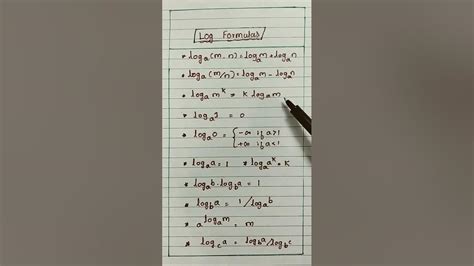 Log Formulas
* logₐ(m.n) = logₐm + logₐn
* logₐ(m/n) = logₐm - logₐn
* logₐmᵏ = k logₐm
* logₐ1 = 0
* logₐ0 = { -∞ if a>1
+∞ if a<1
* logₐa = 1 * logₐaᵏ = k
* logₐb . log_b a = 1
* log_b a = 1/logₐb
* a^(logₐm) = m
* log_c a = log_b a/log_b c